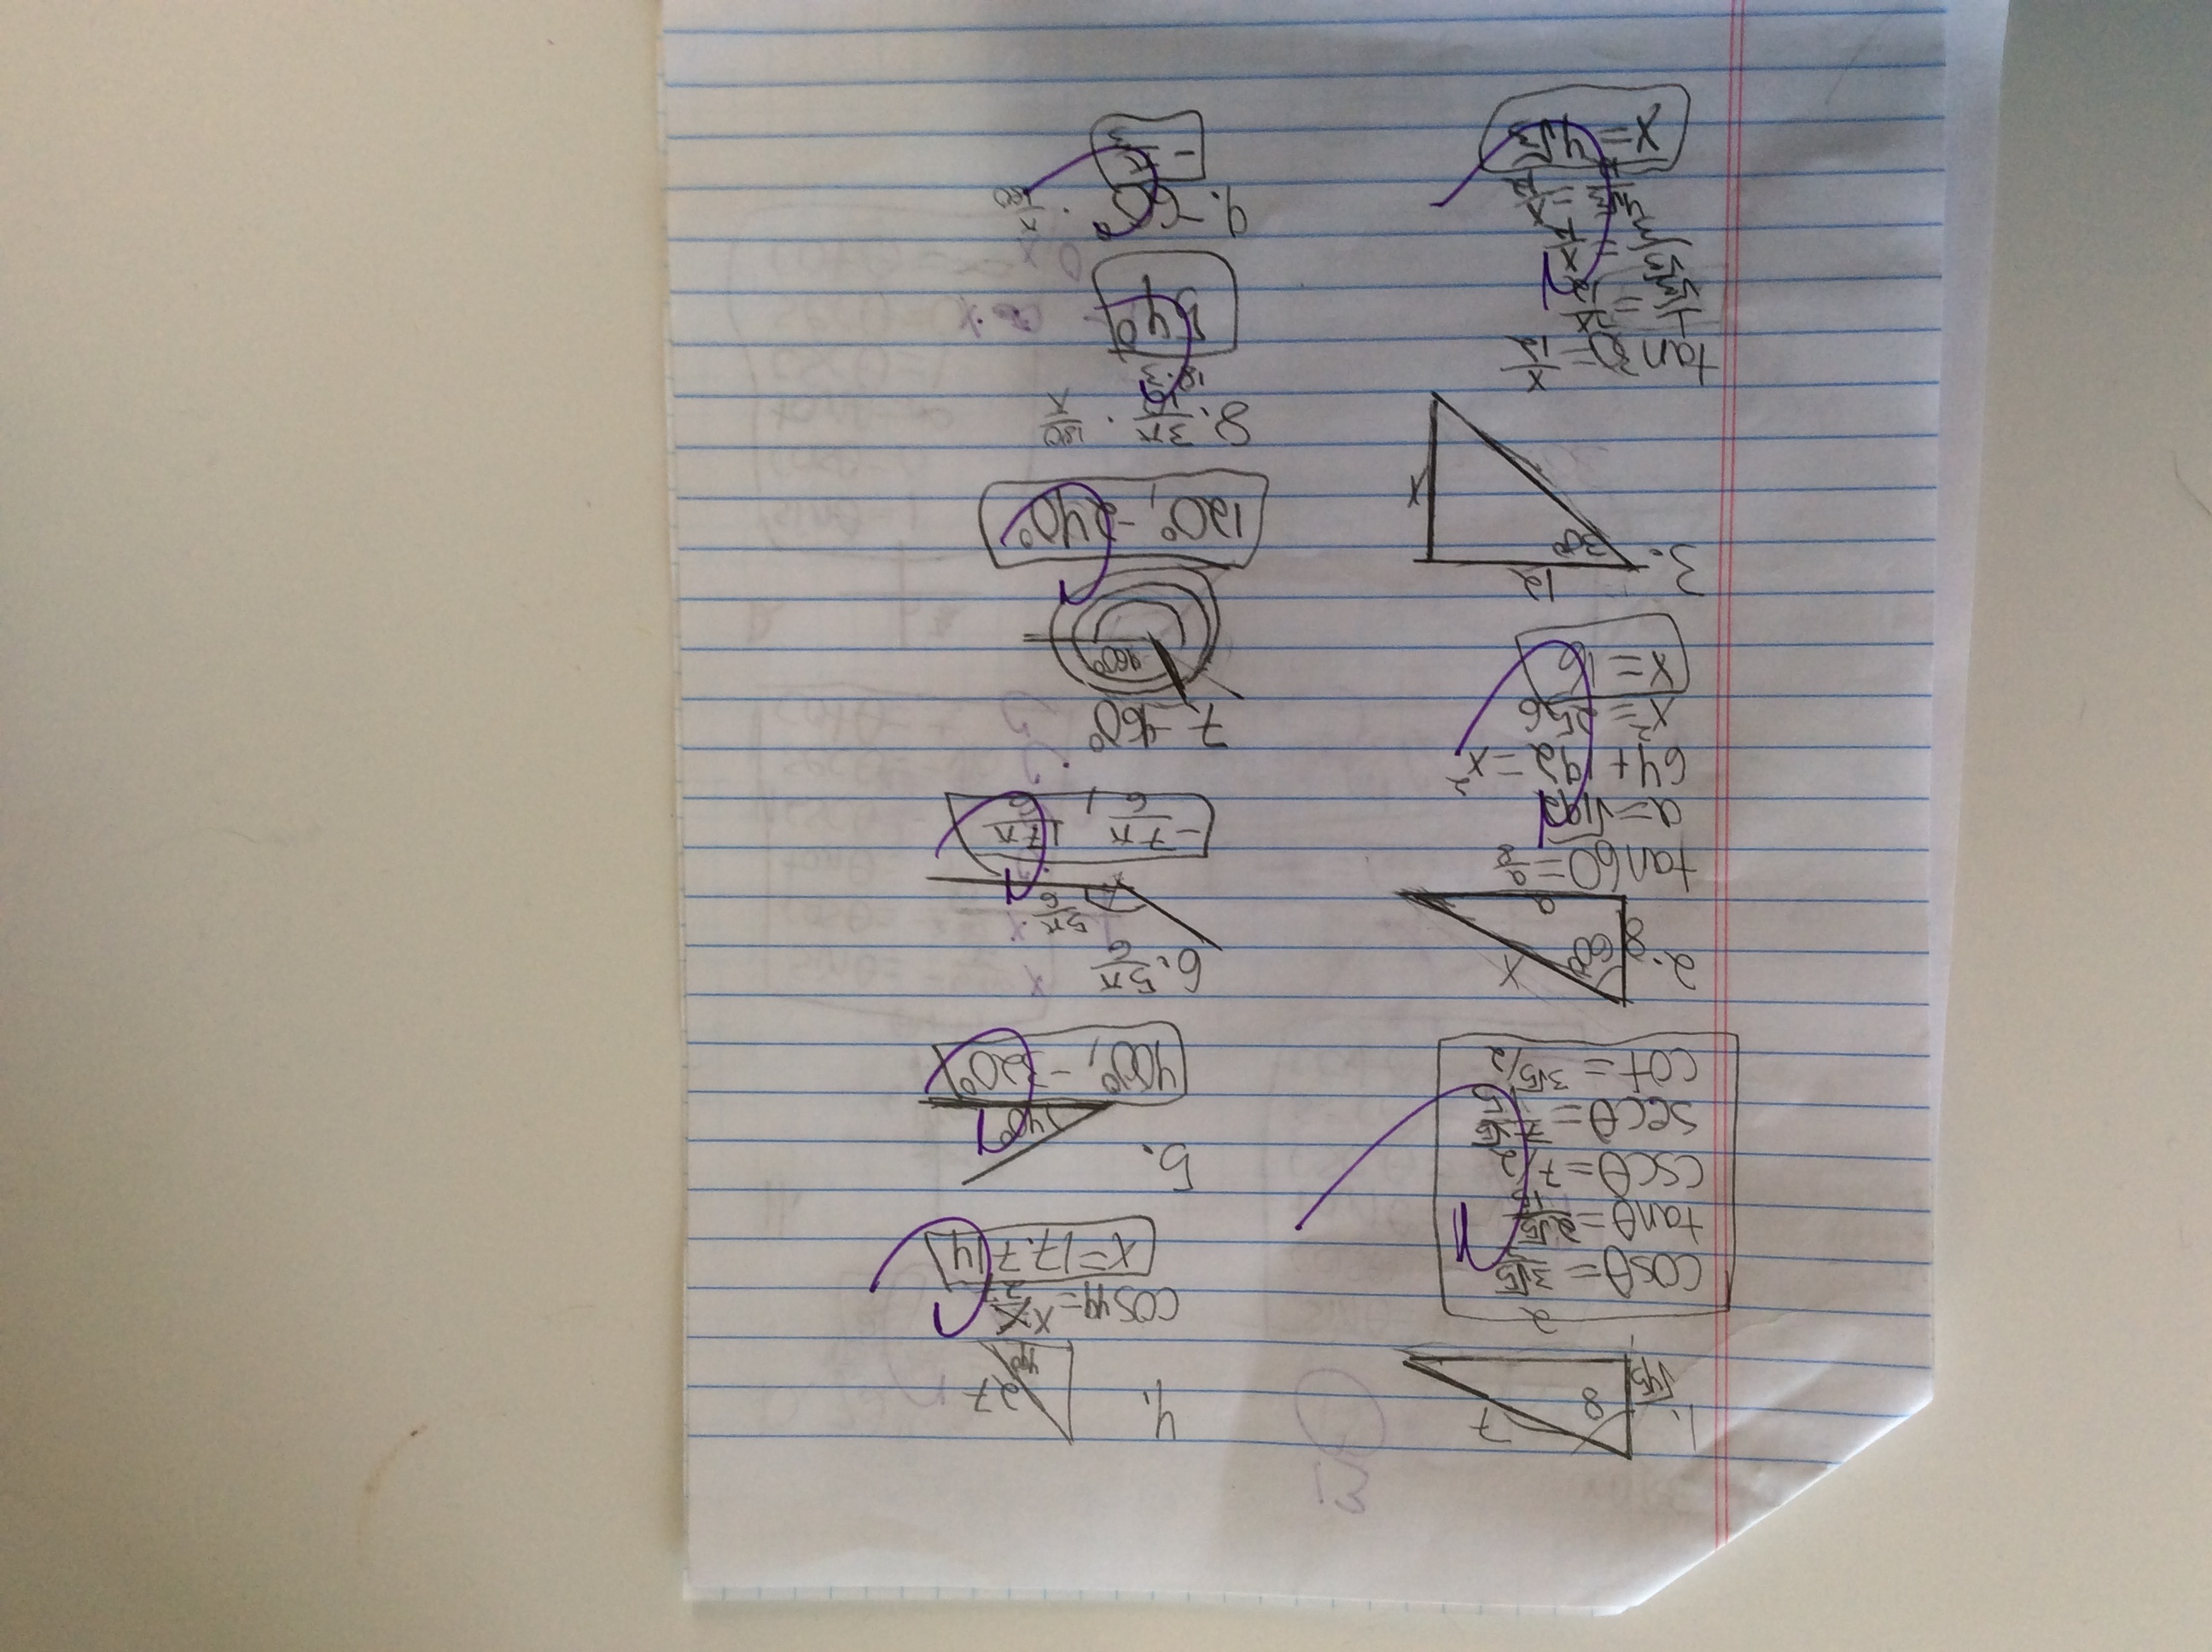 1.
√45
8
7
2
cosθ = 3√5/7
tanθ = 2√5/15
cscθ = 7/2
secθ = 7√5/15
cot = 3√5/2
2.
8
60°
x
a
tan60 = a/8
a = √192
64 + 192 = x²
x² = 256
x = 16
3.
12
30°
x
tan30 = x/12
1/√3 = x/12
√3/3 = x/12
4√3/12 = x/12
x = 4√3
4.
27
49°
cos49 = x/27
x = 17.714
5.
40°
400°, -320°
6. 5π/6
5π/6
-7π/6, 17π/6
7. -960°
-960°
120°, -240°
8. 3π/10 · 180/π
18·3
54°
9. -60° · π/180
-π/3